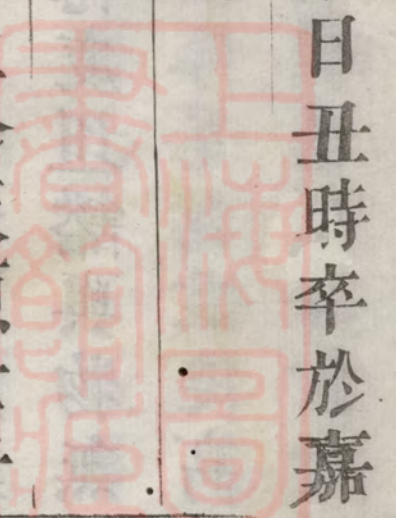 日丑時卒於嘉
上海圖
書館藏